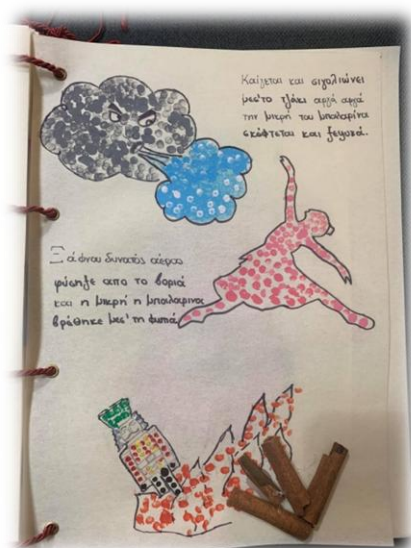 Καίγεται και σιγολιώνει
μεσ' το τζάκι αργά αργά
την μικρή του μπαλαρίνα
σκέφτεται και ξεψυχά.
Ξάφνου δυνατός αέρας
φύσηξε απο το βοριά
και η μικρή η μπαλαρινα
βρέθηκε μεσ' τη φωτιά.